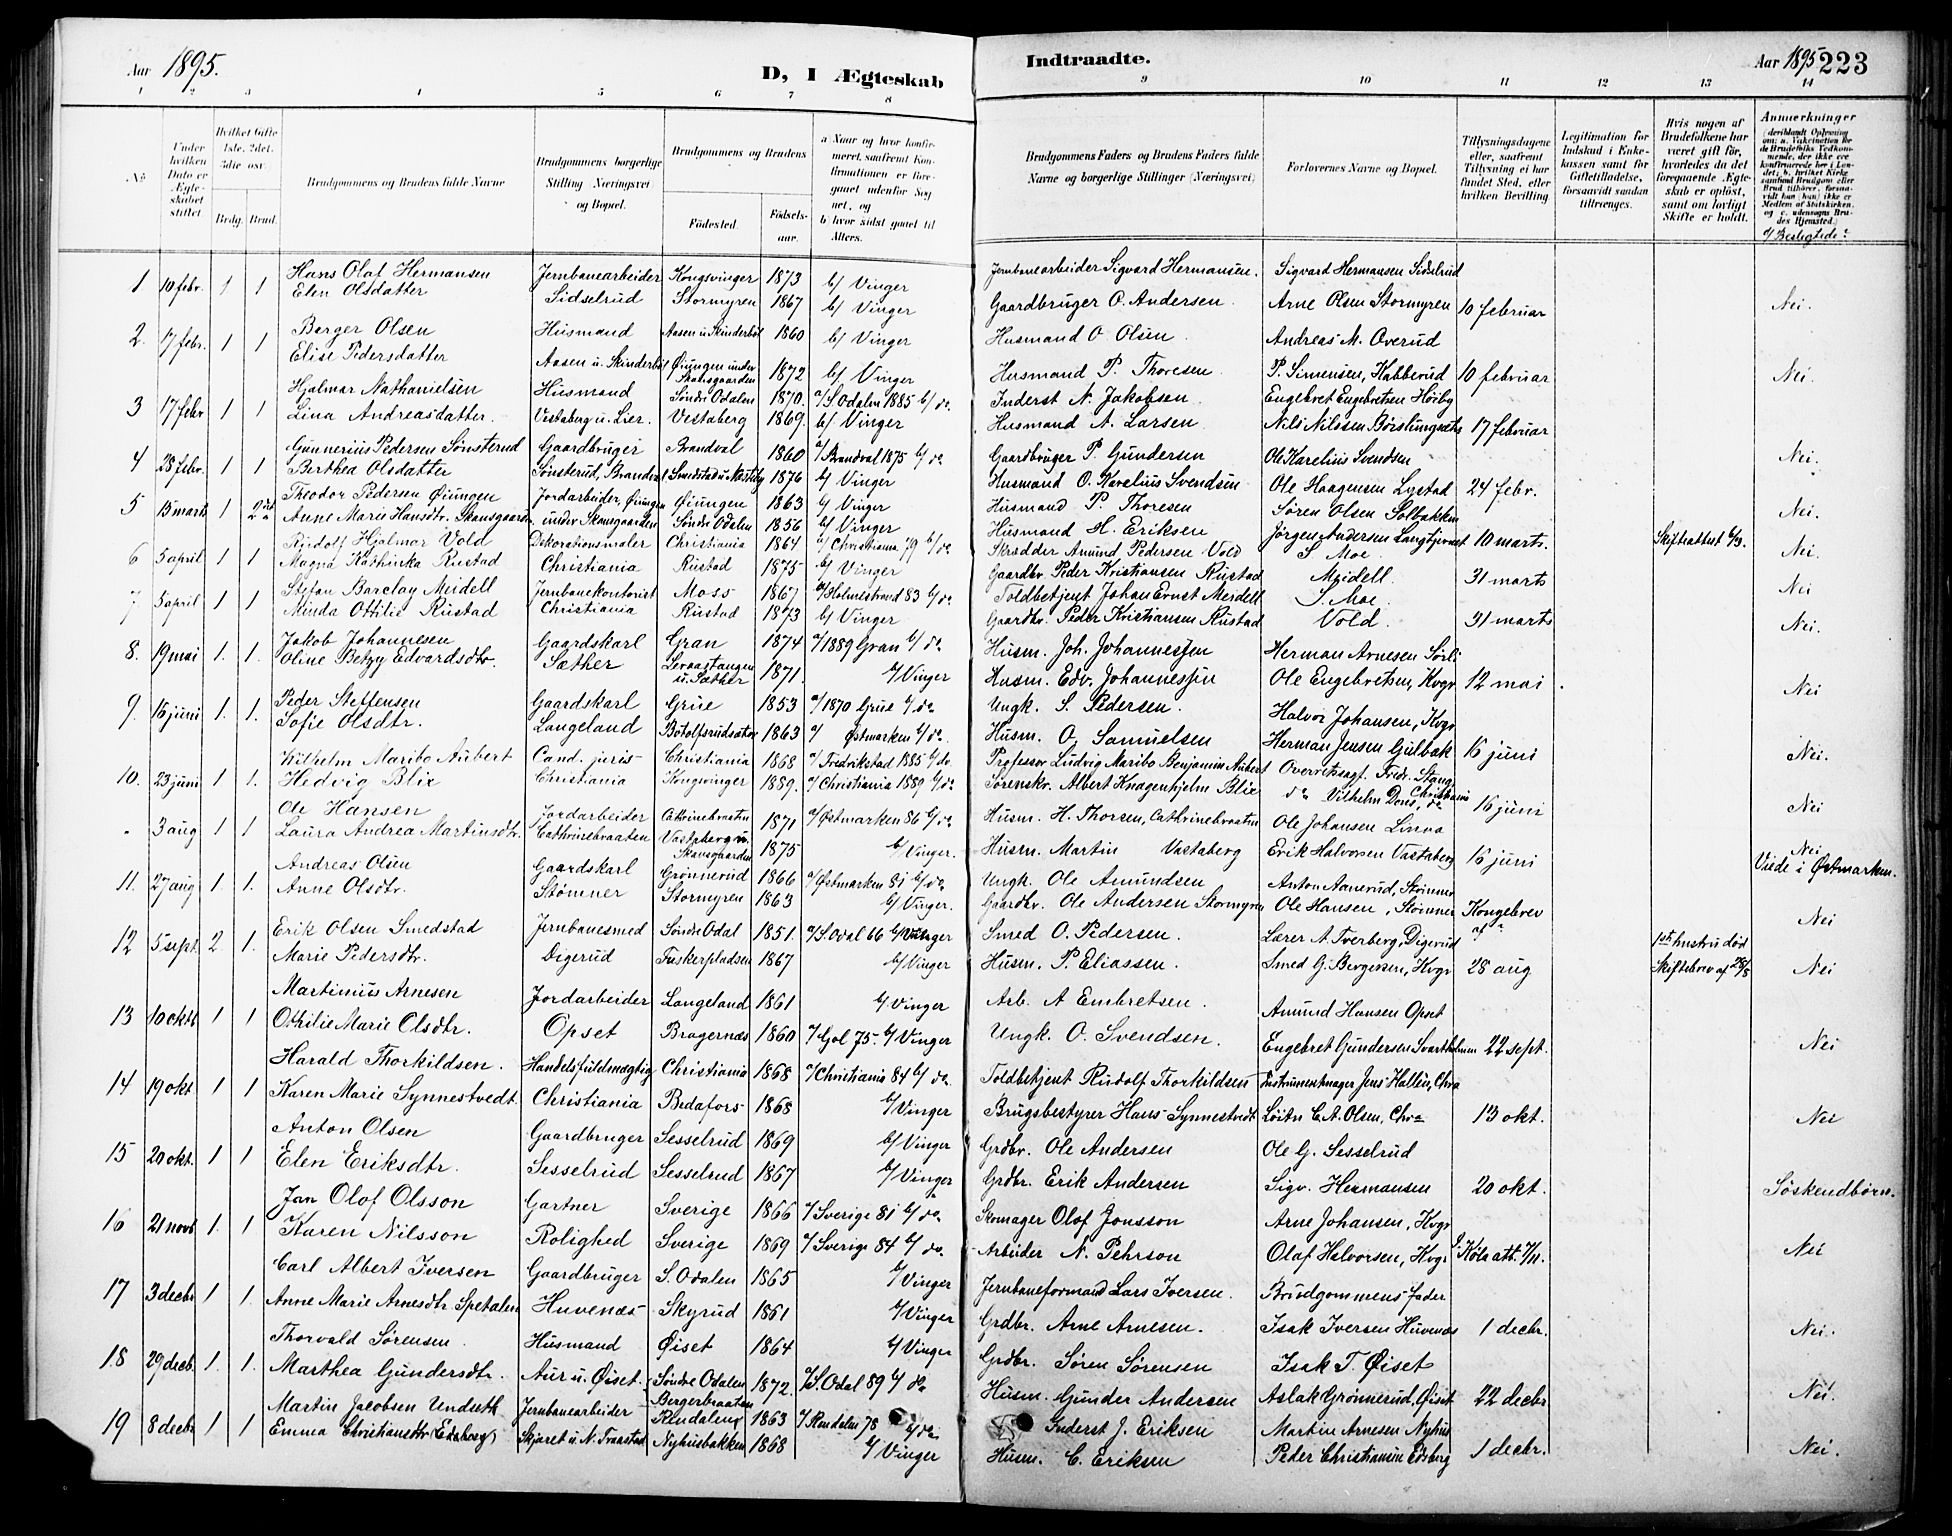 Aar 1895.
D, I Ægteskab
Indtraadte.
Aar 1895 223
1 2 3 4 5 6 7 8 9 10 11 12 13 14
No
Under hvilken Dato er Ægteskabet stiftet.
Hvilket Gifte 1ste, 2det, 3die osv.
Brdg. Brud.
Brudgommens og Brudens fulde Navne
Brudgommens borgerlige Stilling (Næringsvei) og Bopæl.
Brudgommens og Brudens
Fødested.
Fødselsaar.
a) Naar og hvor konfirmeret, saafremt Konfirmationen er foregaaet udenfor Sognet, og
b) hvor sidst gaaet til Alters.
Brudgommens Faders og Brudens Faders fulde Navne og borgerlige Stillinger (Næringsvei)
Forlovernes Navne og Bopæl.
Tillysningsdagene eller, saafremt Tillysning ei har fundet Sted, efter hvilken Bevilling
Legitimation for Indskud i Enkekassen samt for Giftetilladelse, forsaavidt saadan tiltrænges.
Hvis nogen af Brudefolkene har været gift før, hvorledes da det foregaaende Ægteskab er opløst, samt om lovligt Skifte er holdt.
Anmærkninger
d/ Beslegtede?
Hans Olaf Hermansen Jernbanearbeider Kongsvinger 1873 b/ Vinger Jernbanearbeider Sigvard Hermansen. Sigvard Hermansen Sidselrud
1 10 febr. 1 1 Elen Olsdatter Sidselrud Stormyren 1867 b/ Vinger Gaardbruger O. Andersen Arne Olsen Stormyren 10 februar Nei.
Berger Olsen Husmand Aasen u. Skinderböl 1860 b/ Vinger Husmand O. Olsen Andreas M. Overud
2. 17 febr. 1 1 Elise Pedersdatter Aasen u. Skinderböl Øiungen under Skansgaarden 1872 b/ Vinger Husmand P. Thoresen P. Simensen, Kabberud 10 februar Nei.
Hjalmar Nathanielsen Husmand Søndre Odalen 1870. a/ S. Odalen 1885 b/ do Inderst N. Jakobsen Engebret Engebretsen Hörby
3 17 febr 1 1 Lina Andreasdatter. Vestaberg u. Lier. Vestaberg 1869. b/ Vinger Husmand A. Larsen Nils Nilssen Börslungsæter 17 februar
Gunnerius Pedersen Sønsterud Gaardbruger Brandval 1860 a/ Brandval 1875 b/ do Gaardbruger P. Gundersen Ole Karelius Svendsen Nei.
4 28 febr. 1 1 Berthea Olsdatter Sønsterud, Brandval 1876 b/ Vinger Husmand O. Karelius Svendsen Ole Haagensen Lystad 24 febr.
Theodor Pedersen Øiungen Jordarbeider, Øiungen Øiungen 1863 b/ Vinger Husmand P. Thoresen Søren Olsen Solbakken Nei.
5 15 marts 1 2det Anne Marie Hansdtr. Skansgaarden under Skansgaarden Søndre Odalen 1856 b/ Vinger Husmand H. Eriksen Jörgen Andersen Langtjernet 10 marts. Skifteattest 6/3.
Rudolf Hjalmar Vold Dekorationsmaler Christiania 1864 a/ Christiania 79 b/ do Skrædder Amund Pedersen Vold S. Moe Nei.
6 5 april 1 1 Magna Kathinka Rustad Christiania Rustad 1875 b/ Vinger Gaardbr. Peder Kristiansen Rustad Meidell. 31 marts
Stefan Barclay Meidell Jernbanekontorist Moss 1867 a/ Holmestrand 83 b/ do Toldbetjent Johan Ernst Meidell S. Moe. Nei
7 5 april 1 1 Minda Ottilie Rustad Christiania Rustad 1873 b/ Vinger Gaardbr. Peder Kristiansen Rustad Vold. 31 marts
Jakob Johannesen Gaardskarl Gran 1874 a/ 1889 Gran b/ do Husm. Joh. Johannessen Herman Arnesen Sörli Nei.
8. 19 mai 1. 1. Oline Betzy Edvardsdtr. Sæther u. Sæther 1871. b/ Vinger Husm. Edv. Johannessen Ole Engebretsen, Kvgr 12 mai.
Peder Steffensen Gaardskarl Grue 1853 a/ 1870 Grue b/ do Ungk. S. Pedersen. Halvor Johansen, Kvgr Nei
9. 16 juni 1. 1. Sofie Olsdtr. Langeland Botolfsrudsæter 1863 a/ Østmarken b/ do. Husm. O. Samuelsen Herman Jensen Gulbak 16 juni
Vilhelm Maribo Aubert Cand. juris Christiania 1868 a/ Fredrikstad 1885 b/ do Professor Ludvig Maribo Benjamin Aubert Overretssagf. Fredr. Stang Christiania Nei.
10. 23 juni 1 1. Hedvig Blix Christiania Kongsvinger 1889. a/ Christiania 1889 b/ do Sørenskr. Albert Knagenhjelm Blix do Vilhelm Dons, do 16 juni
Ole Hansen Jordarbeider Cathrinebraaten 1871 a/ Østmarken 86 b/ do. Husm. H. Thorsen, Cathrinebraaten Ole Johansen Linna Nei
" 3 aug 1 1 Laura Andrea Martinsdtr. Cathrinebraaten Vastaberg u. Skansgaarden 1875 b/ Vinger. Husm. Martin Vastaberg Erik Halvorsen Vastaberg 16 juni Nei
Viede i Østmarken.
Andreas Olsen Gaardskarl Grønnerud 1866 a/ Østmarken 81 b/ do Ungk. Ole Amundsen Anton Aanerud, Stömner
11. 27 aug 1. 1. Anne Olsdtr. Stømner Stormyren 1863 b/ Vinger. Gaardbr. Ole Andersen Stormyren Ole Hansen, Stømner Kongebrev af Nei
Erik Olsen Smedstad Jernbanesmed Søndre Odal 1851. a/ S. Odal 66 b/ Vinger Smed O. Pedersen. Lærer A. Tverberg, Digerud 1ste hustru död
12 5 sept. 2 1. Marie Pedersdtr. Digerud Fuskerpladsen 1867 b/ Vinger Husm. P. Eliassen. Smed G. Bergersen, Kvgr 28 aug Skiftebrev af 28/8 Nei
Martinius Arnesen Jordarbeider Langeland 1861 b/ Vinger Arb. A. Embretsen. Amund Hansen Opset
13 10 oktb 1 1 Othilie Marie Olsdtr. Opset Bragernæs 1860 a/ Gol 75. b/ Vinger Ungk. O. Svendsen. Engebret Gundersen Svartholmen 22 sept. Nei
Harald Thorkildsen. Handelsfuldmægtig Christiania 1868 a/ Christiania 84 b/ do. Toldbetjent Rudolf Thorkildsen Instrumentmager Jens Hallén, Chra
14 19 okt 1 1 Karen Marie Synnestvedt. Christiania Bedafors 1868 b/ Vinger Brugsbestyrer Hans Synnestvedt Løitn. C. A. Olsen, Chra 13 okt. Nei
Anton Olsen Gaardbruger Sesselrud 1869 b/ Vinger Grdbr. Ole Andersen Ole G. Sesselrud
15 20 okt. 1 1 Elen Eriksdtr. Sesselrud Sesselrud 1867 b/ Vinger Grdbr. Erik Andersen Sigv. Hermansen 20 okt. Søskendbørn.
Jan Olof Olsson Gartner Sverige 1866 a/ Sverige 81 b/ do Skomager Olof Jonsson Arne Johansen, Kvgr
16 21 novb 1. 1 Karen Nilsson Rolighed Sverige 1869 a/ Sverige 84 b/ do. Arbeider N. Pehrson Olaf Halvorsen, Kvgr Köla att. 7/11. Nei
Carl Albert Iversen Gaardbruger S. Odalen 1865 b/ Vinger Jernbaneformand Lars Iversen. Brudgommens fader
17 3 decbr 1 1. Anne Marie Arnesdtr. Spetalen Huvenæs Skyrud 1861 b/ Vinger Grdbr. Arne Arnesen. Isak Iversen Huvenæs 1 decbr. Nei.
Thorvald Sørensen. Husmand Øiset 1864 b/ Vinger Grdbr. Søren Sørensen Isak T. Øiset
18 29 decb. 1. 1. Marthea Gundersdtr. Aur u. Øiset. Søndre Odalen Bergerbraaten 1872. a/ S. Odal 89 b/ do Husm. Gunder Andersen Aslak Grønnerud, Øiset 22 decbr Nei.
Martin Jacobsen Undseth Jernbanearbeider Rendalen 1863 a/ Rendalen 78 b/ do. Inderst J. Eriksen Martin Arnesen Nyhus
19 8 decbr 1 1 Emma Christiansdtr (Edsberg) Skjæret u. N. Traastad Nyhusbakken 1868 b/ Vinger Husm. C. Eriksen Peder Christiansen Edsberg 1 decbr. Nei.